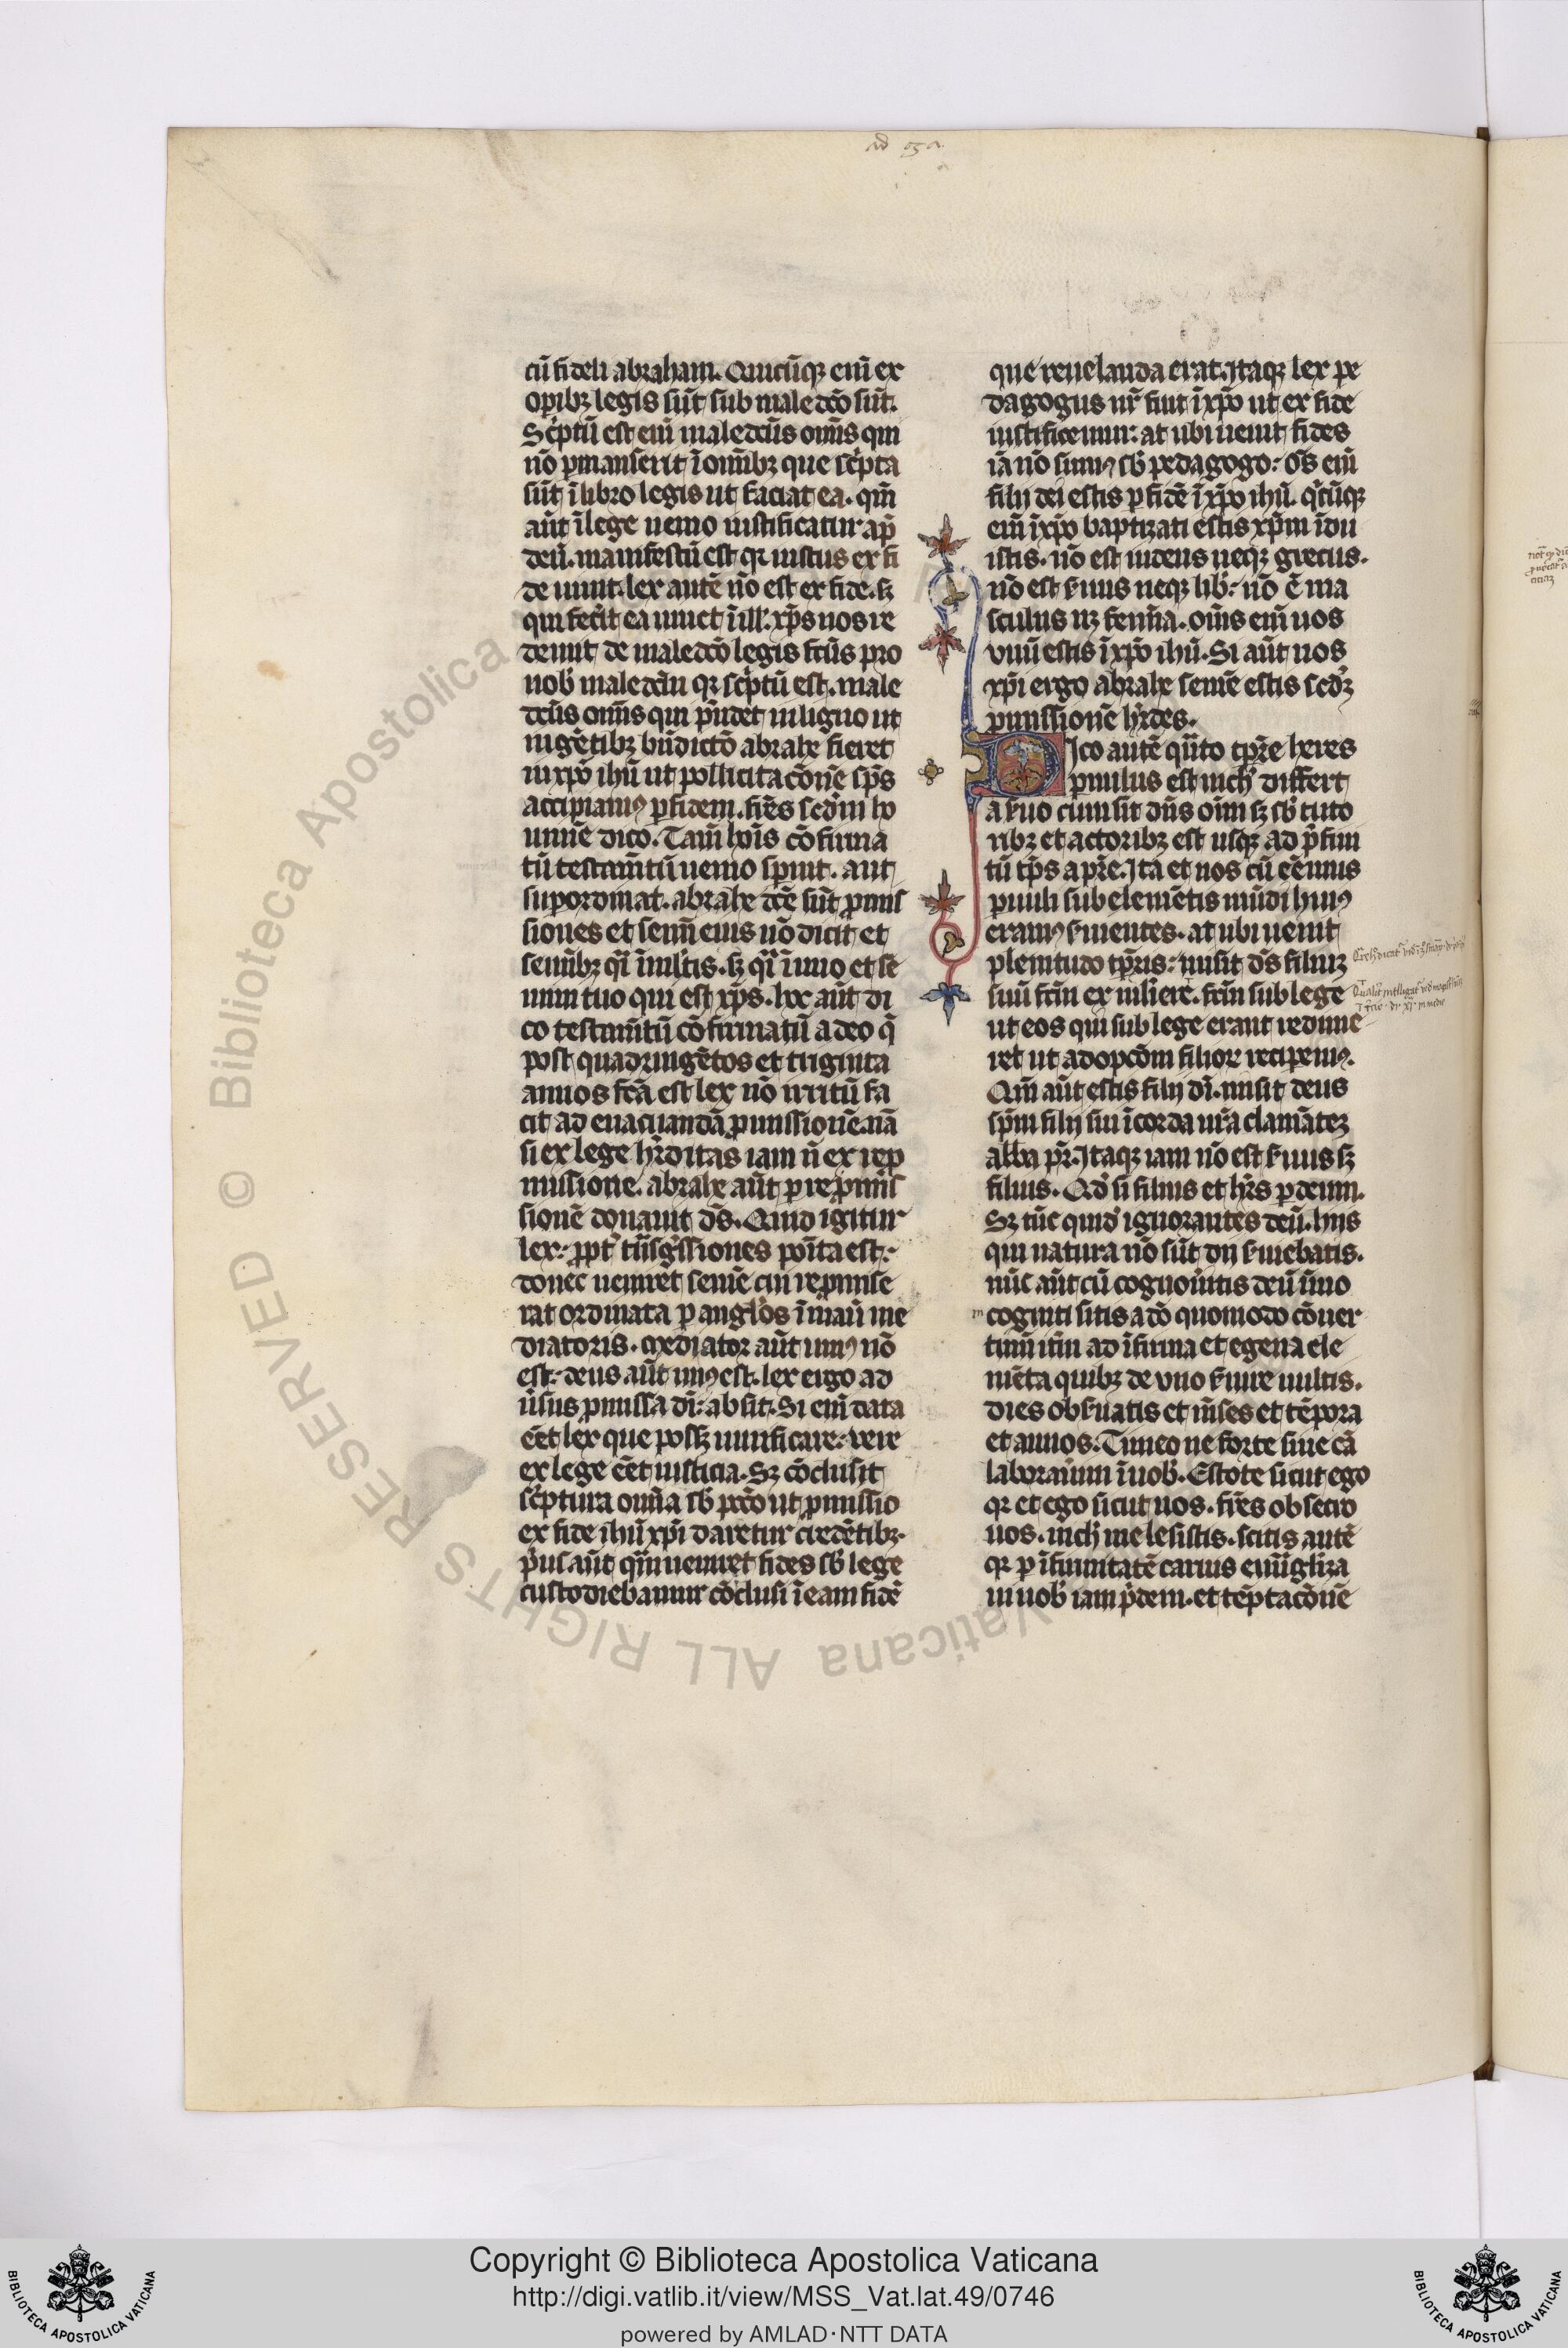 cū fideli abraham. Quicūqꝫ eni̅ ex
oꝑibꝫ legis sūt sub maledc̄o sūt.
Sc̓ptū est eni̅ maledc̄us om̄is qui
nō ꝑmanserit ī om̄ibꝫ que sc̓pta
sūt ī libro legis ut faciat ea. qm̄
aūt ī lege nemo iustificatur ap̄
deū. manifestū est qꝛ iustus ex fi
de uiuit. lex autē nō est ex fide. sꝫ
qui fec̓it ea uiuet ī ill̓. xp̄s nos re
demit de maledc̄o legis fc̄us pro
nob̓ maledc̄m qꝛ sc̓ptū est. male
dc̄us om̄is qui p̄ndet in ligno ut
in gētibꝫ bn̄dictō abrahe fieret
in xp̄o ih̄u ut pollicitacōnē sp̄s
accipiamꝰ ꝑ fidem. fr̄es scd̄m ho
minē dico. Tam̄ hoīs cōfirma
tū testam̄tū nemo sp̄nit. aut
suꝑordinat. abrahe dc̄e sūt ꝓmis
siones et semī eius nō dicit et
semībꝫ q̓i ī multis. sꝫ q̓i ī uno et se
mini tuo qui est xp̄s. hoc aūt di
co testam̄tū cōfirmatū a deo q̄
post quadringētos et triginta
annos fc̄a est lex nō irritū fa
cit ad euacuandā ꝓmissionē. nā
si ex lege hr̄ditas iam n̄ ex reꝓ
missione. abrahe aūt ꝑ reꝓmis
sionē donauit dš. Quid igitur
lex: ꝓpt̓ tn̄sgr̄ssiones poīta est:
donec ueniret semē cui reꝓmise
rat ordinata ꝑ angl̓os ī manū me
diatoris. mediator aūt uniꝰ nō
est: deus aūt unꝰ est. lex ergo ad
ūsus ꝓmissa dī: absit. Si eni̅ data
eēt lex que possꝫ uiuificare: vere
ex lege eēt iusticia. Sꝫ cōclusit
sc̓ptura omīa sb̓ pcc̄o ut ꝓmissio
ex fide ih̄u xp̄i daretur credētibꝫ.
p̓us aūt qm̄ ueniret fides sb̓ lege
custodiebamur cōclusi ī eam fidē
que reuelanda erat. Itaqꝫ lex pe
dagogus nr̄ fuit ī xp̄o ut ex fide
iustificemur: at ubi uenit fides
iā nō sumꝰ sb̓ pedagogo: oš eni̅
filij dei estis ꝑ fidē ī xp̄o ih̄u. q̓cūqꝫ
eni̅ ī xp̄o baptizati estis xp̄m īdu
istis. nō est iudeus neqꝫ grecus.
nō est s̓uus neqꝫ lib̓: nō ē ma
sculus nꝫ femīa. om̄s eni̅ uos
vnū estis ī xp̄o ih̄u. Si aūt uos
xp̄i ergo abrahe semē estis scd̓ꝫ
ꝓmissionē hr̄des.
Dico autē qn̄to tp̄re heres
ꝑuulus est nich̓ differt
a s̓uo cum sit dn̄s oīm sꝫ sb̓ tuto
ribꝫ et actoribꝫ est usqꝫ ad p̄fini
tū tp̄s a pr̄e. Ita et nos cū eēmus
ꝑuuli sub elemētis mūdi huiꝰ
eramꝰ s̓uientes. at ubi uenit
plenitudo tp̄ris: misit dš filiuꝫ
suū fc̄m ex muliere. fc̄m sub lege
ut eos qui sub lege erant redime
ret ut adopcōm filioꝝ reciꝑemꝰ.
Qm̄ aūt estis filij dī. misit deus
sp̄m filij sui ī corda ur̄a clamāteꝫ
abba pr̄. Itaqꝫ iam nō est s̓uus sꝫ
filius. Qd̓ si filius et hr̄s ꝑ deum.
Sꝫ tūc quid̓ ignorantes deū. hijs
qui natura nō sūt dij s̓uiebatis.
nūc aūt cū cognoūitis deū īmo
cogniti sitis a dō quomodo cōuer
timī itm̄ ad īfirma et egena ele
mēta quibꝫ de vno s̓uire uultis.
dies obs̓uatis et m̄ses et tēpora
et annos. Timeo ne forte sine cā
laborau̓im ī uob̓. Estote sicut ego
qꝛ et ego sicut uos. fr̄es obsecro
uos. nich̓ me lesistis. scitis autē
qꝛ ꝑ īfirmitatē carnis euūgliza
ui uob̓ iam p̓dem. et tēptacōnē
Copyright © Biblioteca Apostolica Vaticana
http://digi.vatlib.it/view/MSS_Vat.lat.49/0746
powered by AMLAD·NTT DATA
BIBLIOTECA APOSTOLICA VATICANA
BIBLIOTECA APOSTOLICA VATICANA
© Biblioteca Apostolica Vaticana ALL RIGHTS RESERVED